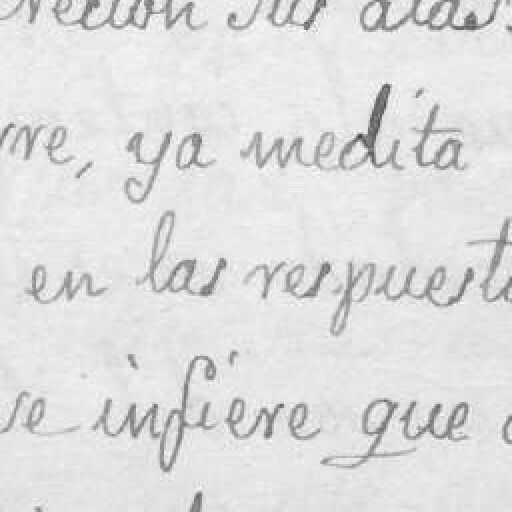 sus alas
ya medita
en las respuest
se infiere que